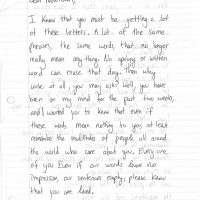 I know that you must be getting a lot
of these letters. A lot of the same
phrases, the same words that no longer
really mean anything. No apology or written
word can erase that day. Then why
write at all, you may ask? Well, you have
been on my mind for the past two weeks,
and I wanted you to know that even if
these words mean nothing to you, at least
remember the multitudes of people all around
the world who care about you. Every one
of you. Even if our words leave no
impression, our sentences empty, please know
that you are loved.